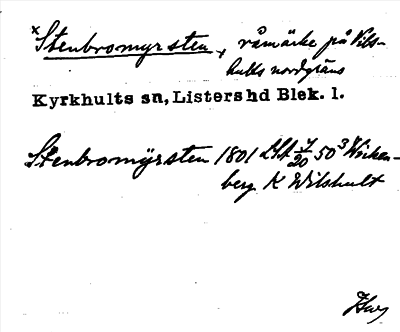 ×Stenbromyrsten, råmärke på Vils-
hults nordgräns
Kyrkhults sn, Listers hd Blek. l.
Stenbromÿrsten 1801 LSA 7/20 50³ Wirken-
berg K Wilshult